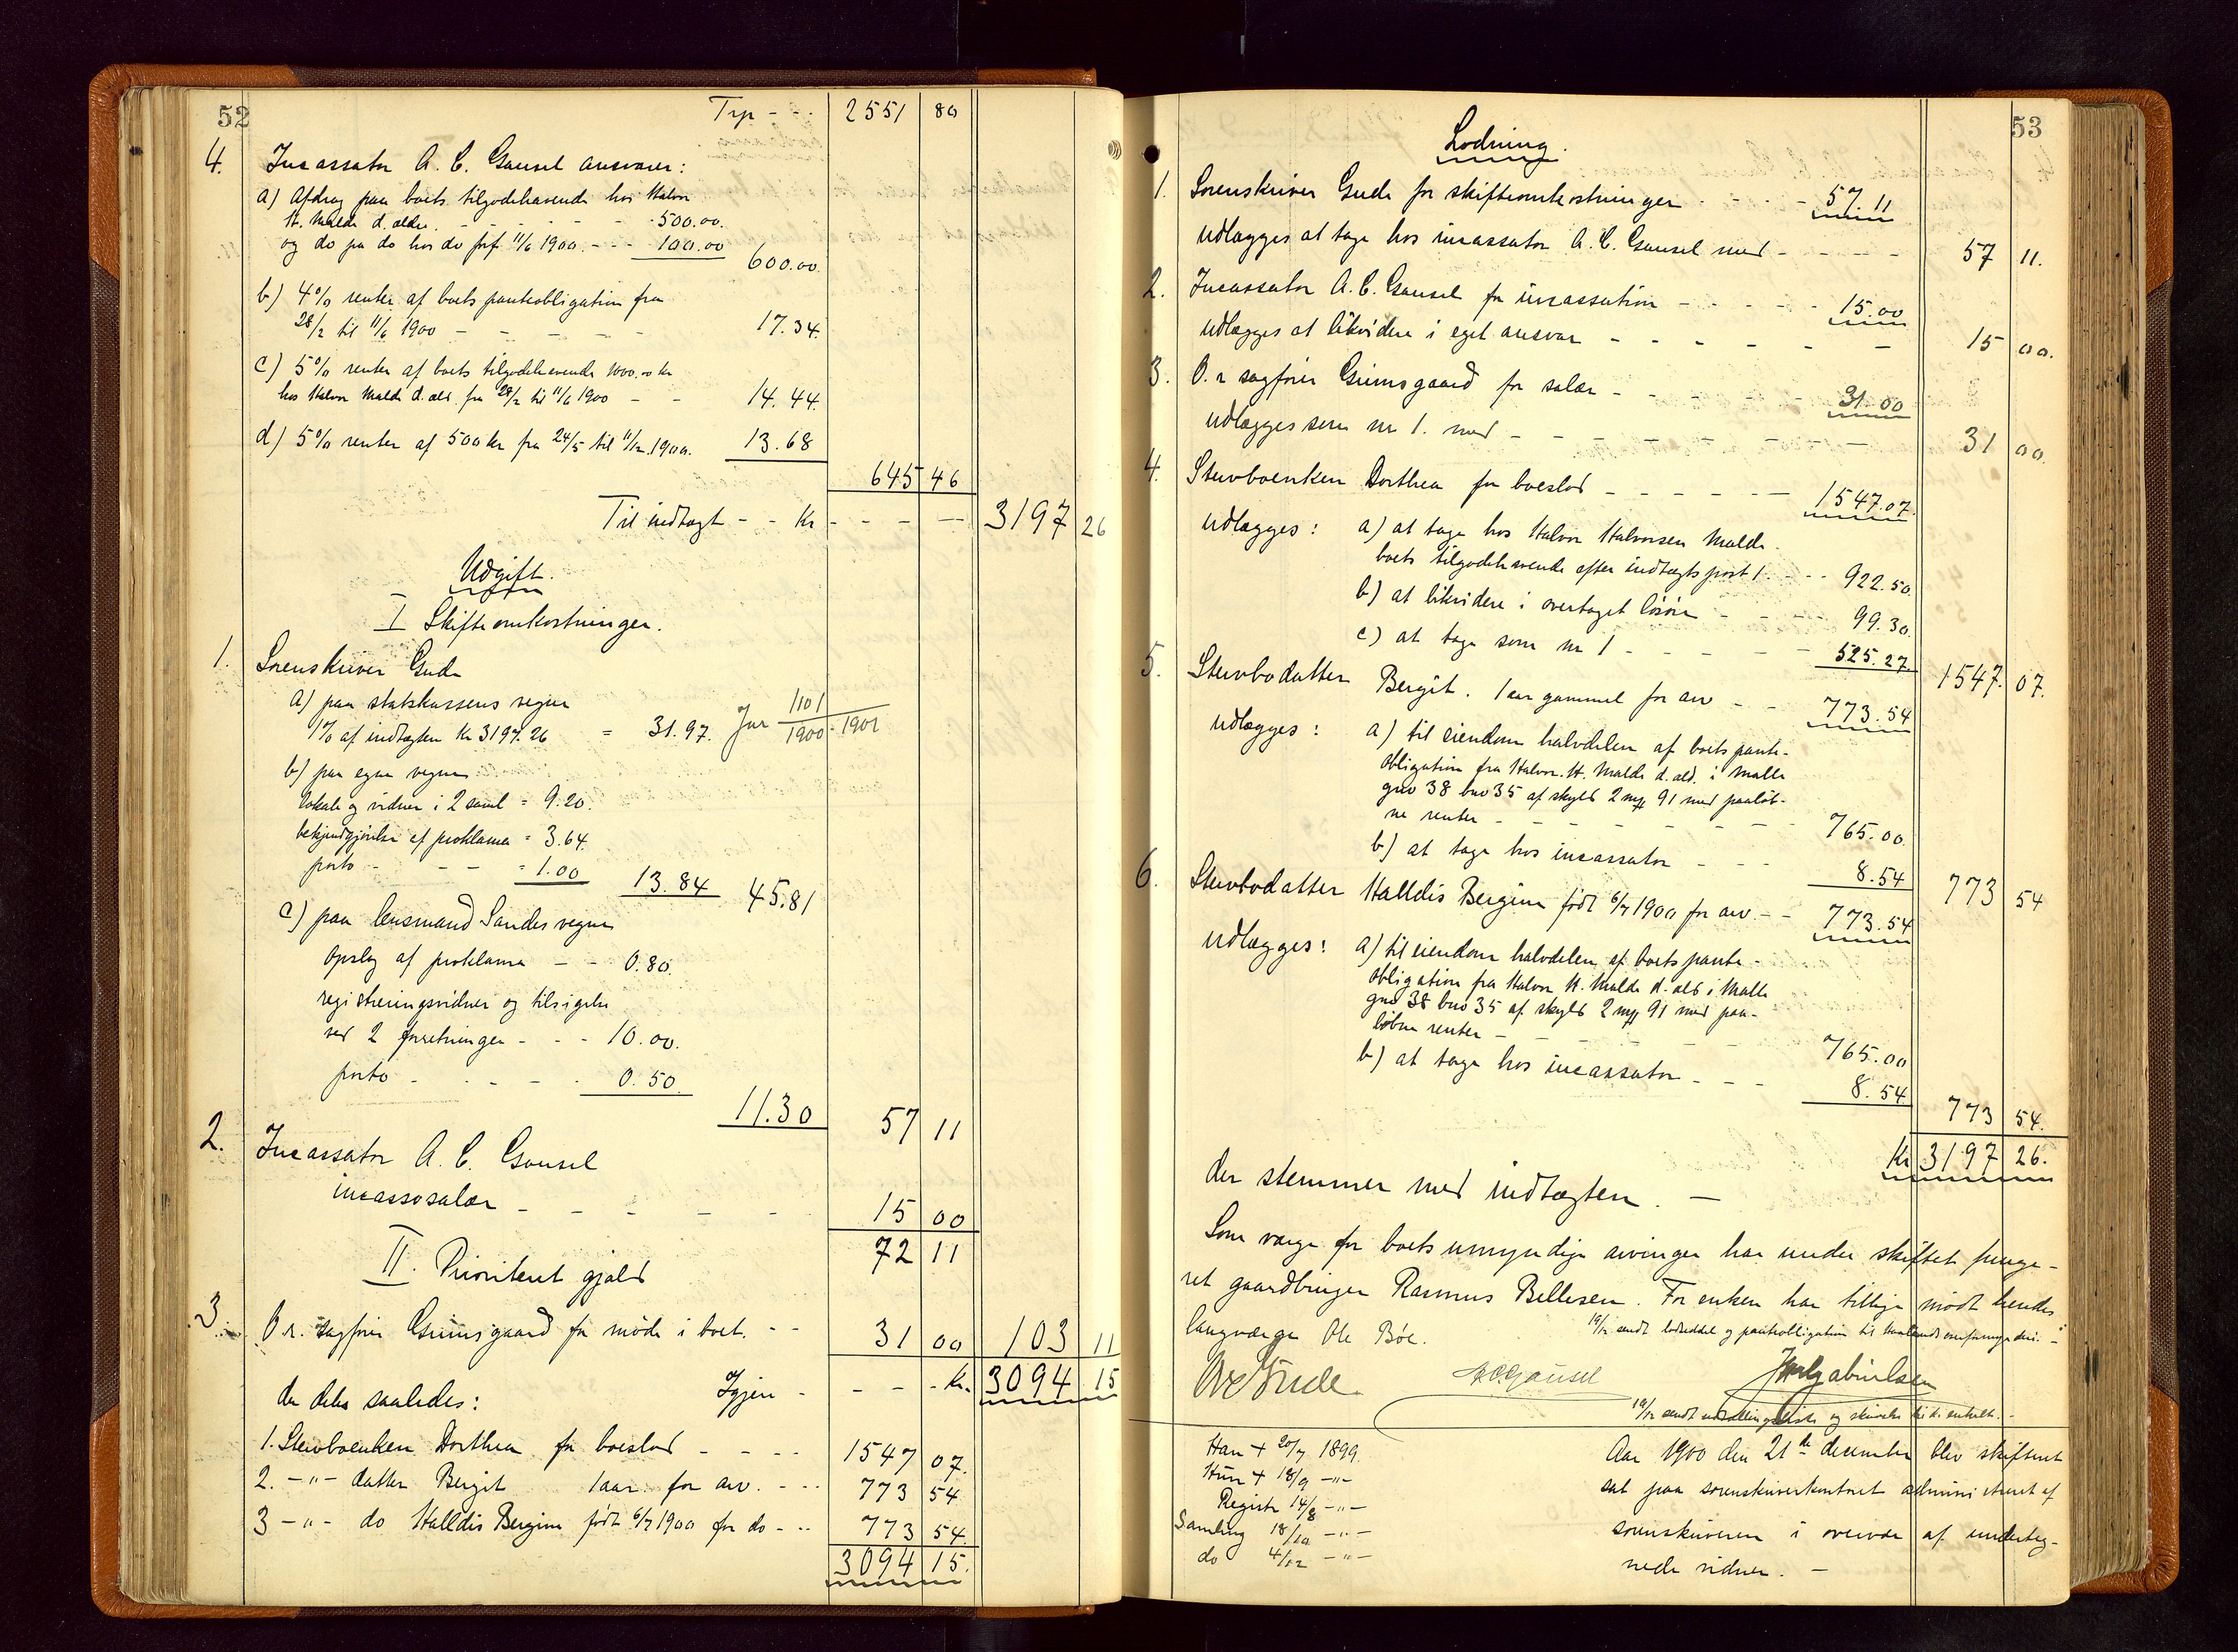 52
Trp - - - 2551 80
4. Incassator A. C. Gausel ansvarer:
a) Afdrag paa boets tilgodehavende hos Halvor
H. Malde d. ældre. - - - - - 500.00.
og do pa do hos do forf. 11/6 1900. - - - 100.00 600.00.
b) 4% renter af boets panteobligation fra
28/2 til 11/6 1900 - - - - - 17.34.
c) 5% renter af boets tilgodehavende 1000.00 kr
hos Halvor Malde d. æld. fra 28/2 til 11/6 1900 - - 14.44.
d) 5% renter af 500 kr fra 24/5 til 11/12 1900. 13.68
645 46
Til indtægt - - Kr - - - - 3197 26
Udgift.
I Skifteomkostninger.
1. Sorenskriver Gude
a) paa statskassens vegne
1% af indtægten Kr 3197.26 = 31.97. Jur 1101/1900-1901
b) paa egne vegne
lokale og vidner i 2 saml = 9.20.
bekjendtgjørelse af proklama = 3.64.
porto - - - = 1.00 13.84 45.81
c) paa lensmand Sandes vegne
opslag af proklama - - 0.80.
registreringsvidner og tilsigelse
ved 2 forretninger - - - 10.00.
porto - - - - - 0.50
11.30 57 11
2. Incassator A. C. Gausel
incassosalær - - - - - - 15 00
72 11
II. Prioritert gjæld
3. O.r. sagfører Grimsgaard for møde i boet. - - 31 00 103 11
Igjen - - - - Kr. 3094 15
der deles saaledes:
1. Stervboenken Dorthea for boeslod - - - - 1547 07.
2. -"- datter Bergit 1 aar for arv. - - - 773 54
3 -"- do Halldis Bergine født 6/7 1900 for do - - - 773 54.
3094 15.
53
Lodning.
1. Sorenskriver Gude for skifteomkostninger - - - - 57.11
udlægges at tage hos incassator A. C. Gausel med - - - - - 57 11.
2. Incassator A. C. Gausel for incassation - - - - - 15.00
udlægges at likvidere i eget ansvar - - - - - - 15 00.
3. O.r sagfører Grimsgaard for salær - - - - - 31.00
udlægges som nr 1. med - - - - - - - - 31 00.
4. Stervboenken Dorthea for boeslod - - - - - - 1547.07.
udlægges: a) at tage hos Halvor Halvorsen Malde.
boets tilgodehavende efter indtægtspost 1. - - - 922.50.
b) at likvidere i overtaget løsøre - - - - 99.30.
c) at tage som nr 1 - - - - - 525.27. 1547. 07.
5. Stervbodatter Bergit. 1 aar gammel for arv - - 773.54
udlægges: a) til eiendom halvdelen af boets pante-
obligation fra Halvor. H. Malde d. æld. i Malle
gno 38 bno 35 af skyld 2 mark 91 med paaløb-
ne renter - - - - - - - 765.00.
b) at tage hos incassator - - - 8.54 773 54
6. Stervbodatter Halldis Bergine født 6/7 1900 for arv. - - 773.54
udlægges: a) til eiendom halvdelen af boets pante-
obligation fra Halvor H. Malde d. æld i Malle
gno 38 bno 35 af skyld 2 mark 91 med paa-
løbne renter - - - - - - 765.00
b) at tage hos incassator - - - 8.54 773 54.
Kr 3197 26.
der stemmer med indtægten. -
Som værge for boets umyndige arvinger har under skiftet funge-
ret gaardbruger Rasmus Bellesen. For enken har tillige mødt hendes
laugværge Ole Bøe. 19/12 sendt lodseddel og panteobligation til Malands overformynderi. -
Ove Gude. A C Gausel Gabrielsen
19/12 sendt og til enken. -
Han + 20/7 1899.
Hun + 18/9 -"-
Registr 14/8 -"-
Samling 18/10 -"-
do 4/12 -"-
Aar 1900 den 21de december blev skifteret
sat paa sorenskriverkontoret administreret af
sorenskriveren i overvær af underteg-
nede vidner. -